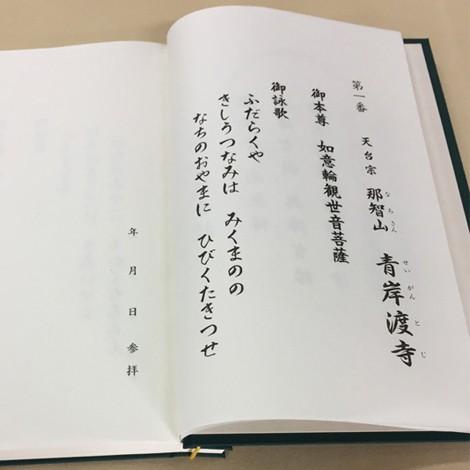 第一番 天台宗 那智山 青岸渡寺
なちさん せいがんとじ
御本尊 如意輪観世音菩薩
御詠歌
ふだらくや
きしうつなみは みくまのの
なちのおやまに ひびくたきつせ
年 月 日 参拝